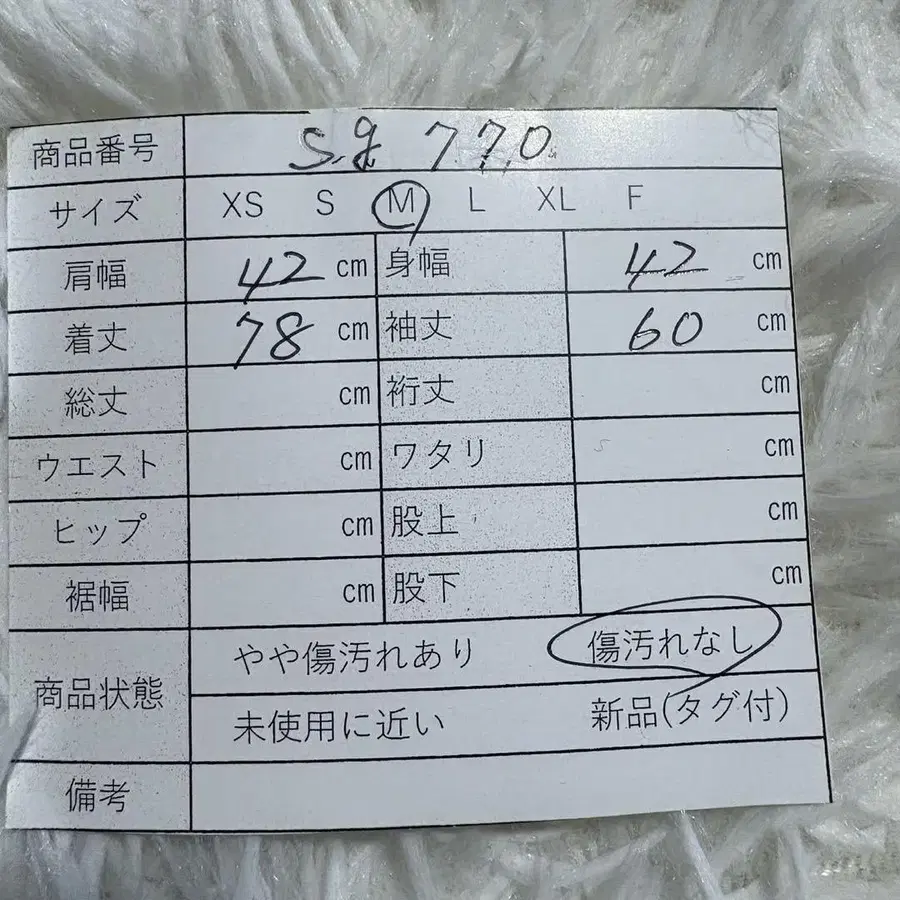 商品番号 S.g 770
サイズ XS S M L XL F
肩幅 42 cm 身幅 42 cm
着丈 78 cm 袖丈 60 cm
総丈 cm 裄丈 cm
ウエスト cm ワタリ cm
ヒップ cm 股上 cm
裾幅 cm 股下 cm
商品状態 やや傷汚れあり 傷汚れなし
未使用に近い 新品(タグ付)
備考